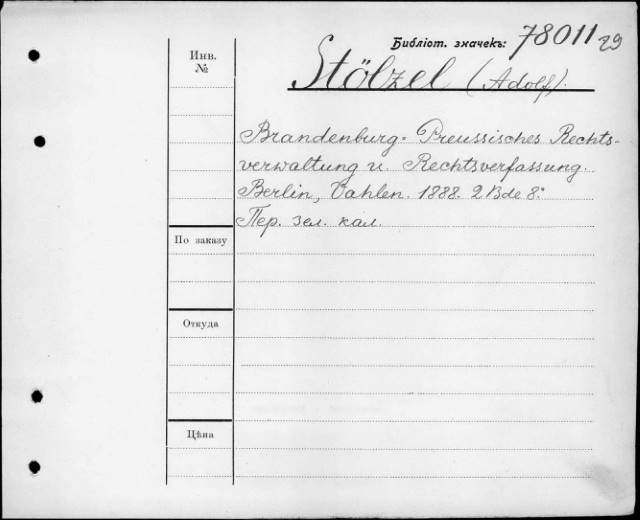 Библіот. значекъ: 78011 29
Инв. №
Stölzel (Adolf).
Brandenburg-Preussisches Rechts-
verwaltung u. Rechtsverfassung.
Berlin, Vahlen. 1888. 2 Bde 8°.
Пер. зел. кал.
По заказу
Откуда
Цѣна